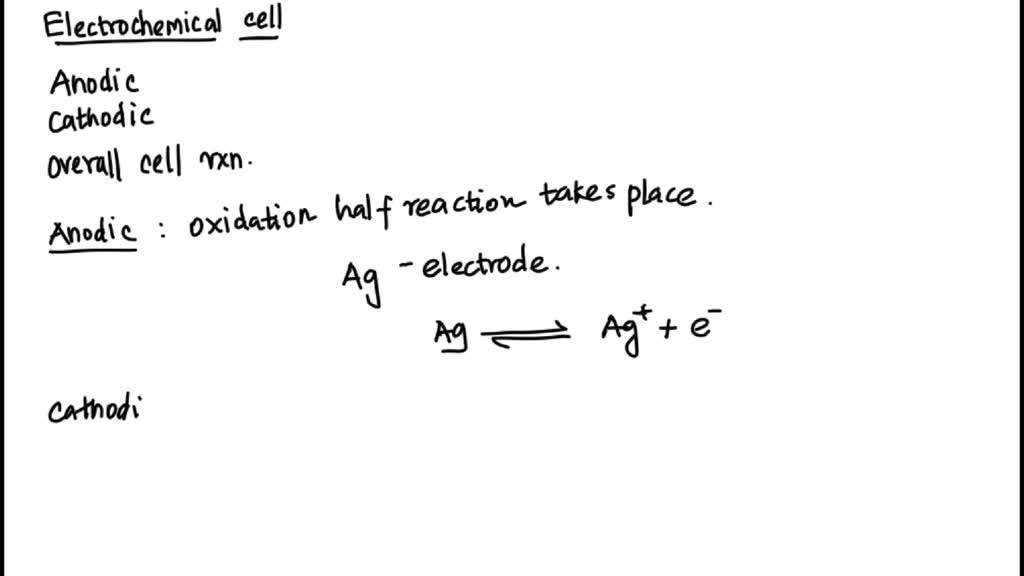 Electrochemical cell
Anodic
Cathodic
overall cell rxn.
Anodic : oxidation half reaction takes place.
Ag - electrode.
Ag ⇌ Ag⁺ + e⁻
Cathodi